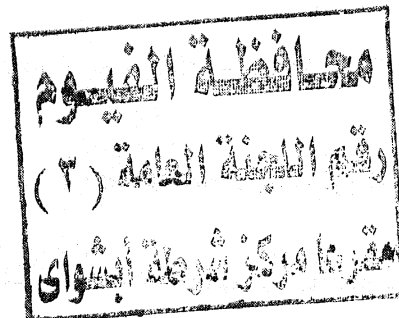 محافظة الفيوم
رقم اللجنة العامة (٣)
مقرها مركز شرطة أبشواى